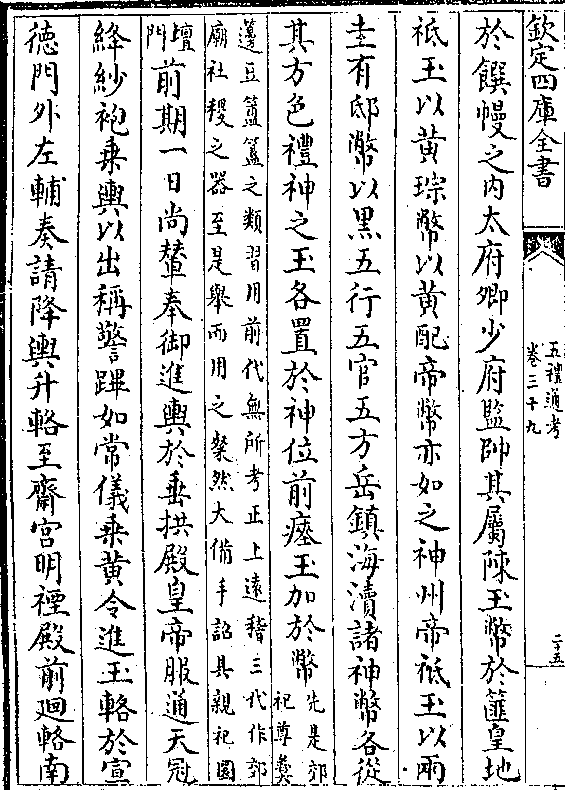 欽定四庫全書
五禮通考
卷三十九
二十五
於饌幔之内太府卿少府監帥其屬陳玉幣於篚皇地
祗玉以黄琮幣以黄配帝幣亦如之神州帝祗玉以兩
圭有邸幣以黒五行五官五方岳鎮海瀆諸神幣各從
其方色禮神之玉各置於神位前瘞玉加於幣
先是郊
祀尊彝
籩豆簠簋之類習用前代無所考正上遠稽三代作郊
廟社稷之器至是舉而用之粲然大備手詔具親祀圜
壇
門
前期一日尚輦奉御進輿於垂拱殿皇帝服通天冠
絳紗袍乗輿以出稱警蹕如常儀乗黄令進玉輅於宣
徳門外左輔奏請降輿升輅至齋宫明禋殿前廻輅南